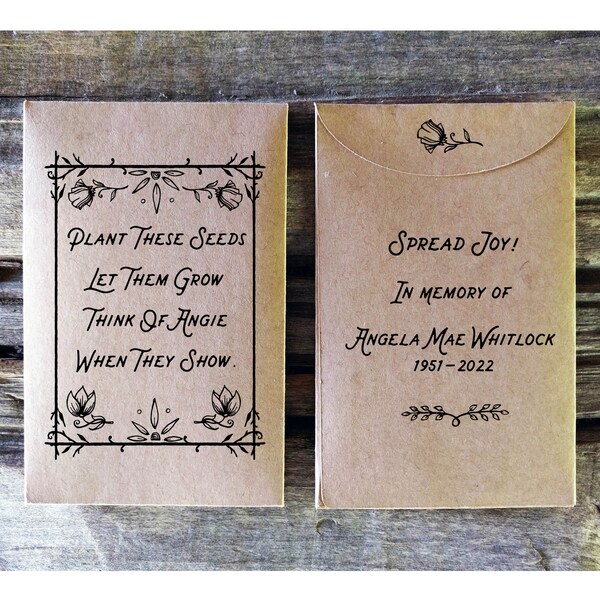 Plant These Seeds
Let Them Grow
Think Of Angie
When They Show.
Spread Joy!
In memory of
Angela Mae Whitlock
1951-2022